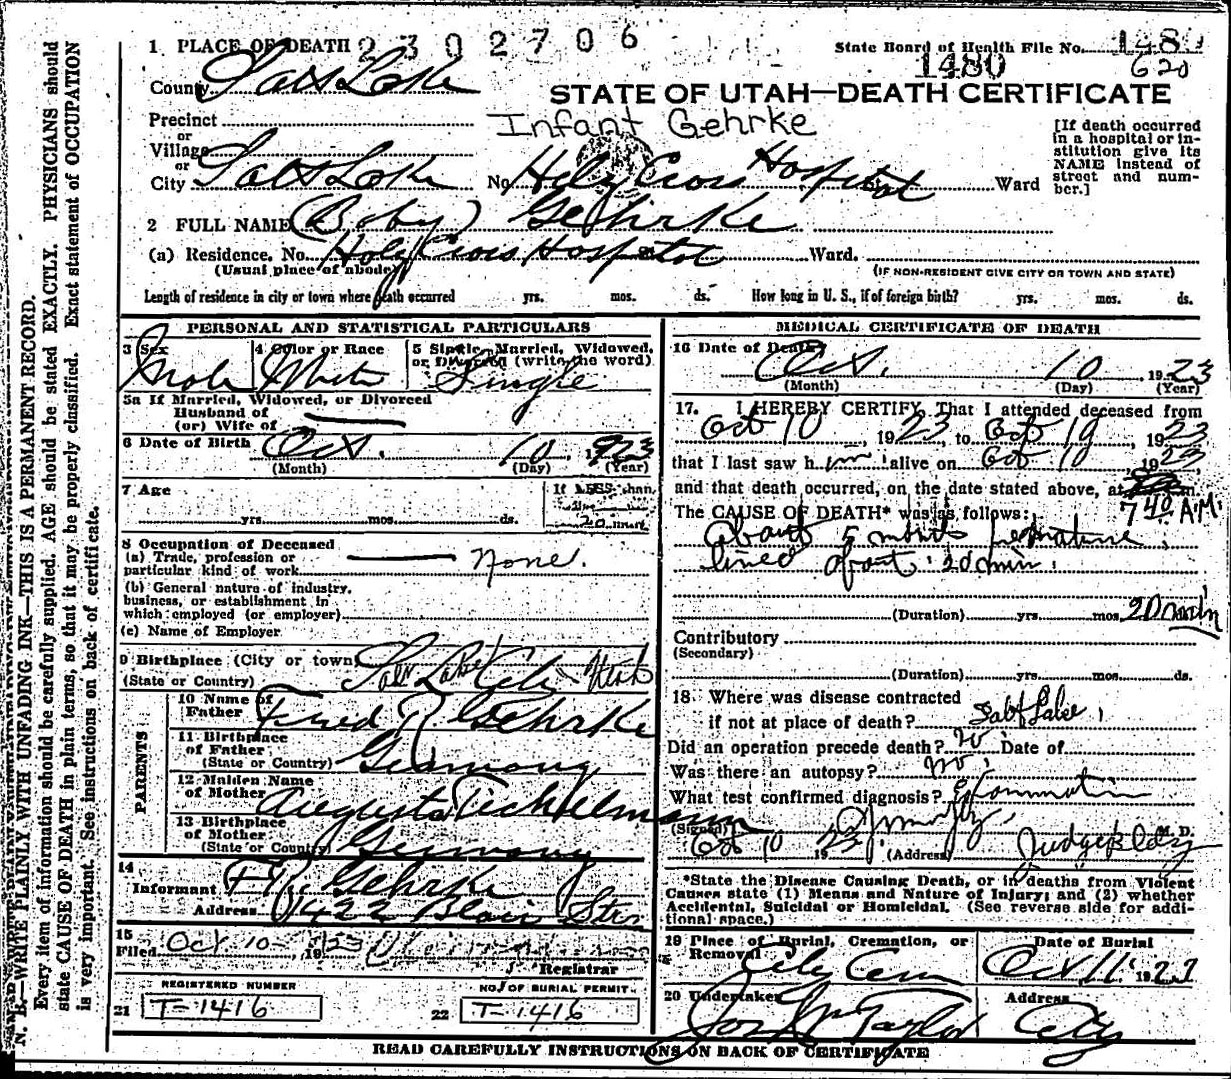 N. B.—WRITE PLAINLY WITH UNFADING INK—THIS IS A PERMANENT RECORD.
Every item of information should be carefully supplied. AGE should be stated EXACTLY. PHYSICIANS should
state CAUSE OF DEATH in plain terms, so that it may be properly classified. Exact statement of OCCUPATION
is very important. See instructions on back of certificate.
1 PLACE OF DEATH 2302706
State Board of Health File No. 1480
1480 620
County Salt Lake
STATE OF UTAH—DEATH CERTIFICATE
Precinct
Infant Gehrke
or
Village
or
City Salt Lake No. Holy Cross Hospital Ward
[If death occurred
in a hospital or in-
stitution give its
NAME instead of
street and num-
ber.]
2 FULL NAME (Baby) Gehrke
(a) Residence. No. Holy Cross Hospital Ward.
(Usual place of abode) (IF NON-RESIDENT GIVE CITY OR TOWN AND STATE)
Length of residence in city or town where death occurred yrs. mos. ds. How long in U. S., if of foreign birth? yrs. mos. ds.
PERSONAL AND STATISTICAL PARTICULARS
3 Sex 4 Color or Race 5 Single, Married, Widowed,
or Divorced (write the word)
Male White Single
5a If Married, Widowed, or Divorced
Husband of
(or) Wife of
6 Date of Birth Oct. 10 1923
(Month) (Day) (Year)
7 Age If LESS than
yrs. mos. ds. 20 min
8 Occupation of Deceased
(a) Trade, profession or
particular kind of work None.
(b) General nature of industry,
business, or establishment in
which employed (or employer)
(c) Name of Employer
9 Birthplace (City or town) Salt Lake City Utah
(State or Country)
PARENTS
10 Name of
Father Fred R. Gehrke
11 Birthplace
of Father
(State or Country) Germany
12 Maiden Name
of Mother Augusta
13 Birthplace
of Mother
(State or Country) Germany
14
Informant F R. Gehrke
Address 1422 Blair Str
15
Filed Oct 10- 1923
Registrar
REGISTERED NUMBER NO. OF BURIAL PERMIT
21 T-1416 22 T-1416
MEDICAL CERTIFICATE OF DEATH
16 Date of Death Oct. 10 1923
(Month) (Day) (Year)
17. I HEREBY CERTIFY, That I attended deceased from
Oct 10, 1923, to Oct 10, 1923
that I last saw him alive on Oct 10 1923
and that death occurred, on the date stated above, at m.
7 40 A.M.
The CAUSE OF DEATH* was as follows:
About 5 months premature,
lived about 20 min.
(Duration) yrs. mos. 20 min
Contributory
(Secondary)
(Duration) yrs. mos. ds.
18 Where was disease contracted
if not at place of death? Salt Lake
Did an operation precede death? no Date of
Was there an autopsy? no.
What test confirmed diagnosis? Examination
(Signed) M. D.
Oct 10 1923 (Address) Judge Bldg
*State the Disease Causing Death, or in deaths from Violent
Causes state (1) Means and Nature of Injury; and (2) whether
Accidental, Suicidal or Homicidal. (See reverse side for addi-
tional space.)
19 Place of Burial, Cremation, or
Removal City Cem
Date of Burial
Oct 11 1923
20 Undertaker Jos Wm Taylor
Address City
READ CAREFULLY INSTRUCTIONS ON BACK OF CERTIFICATE